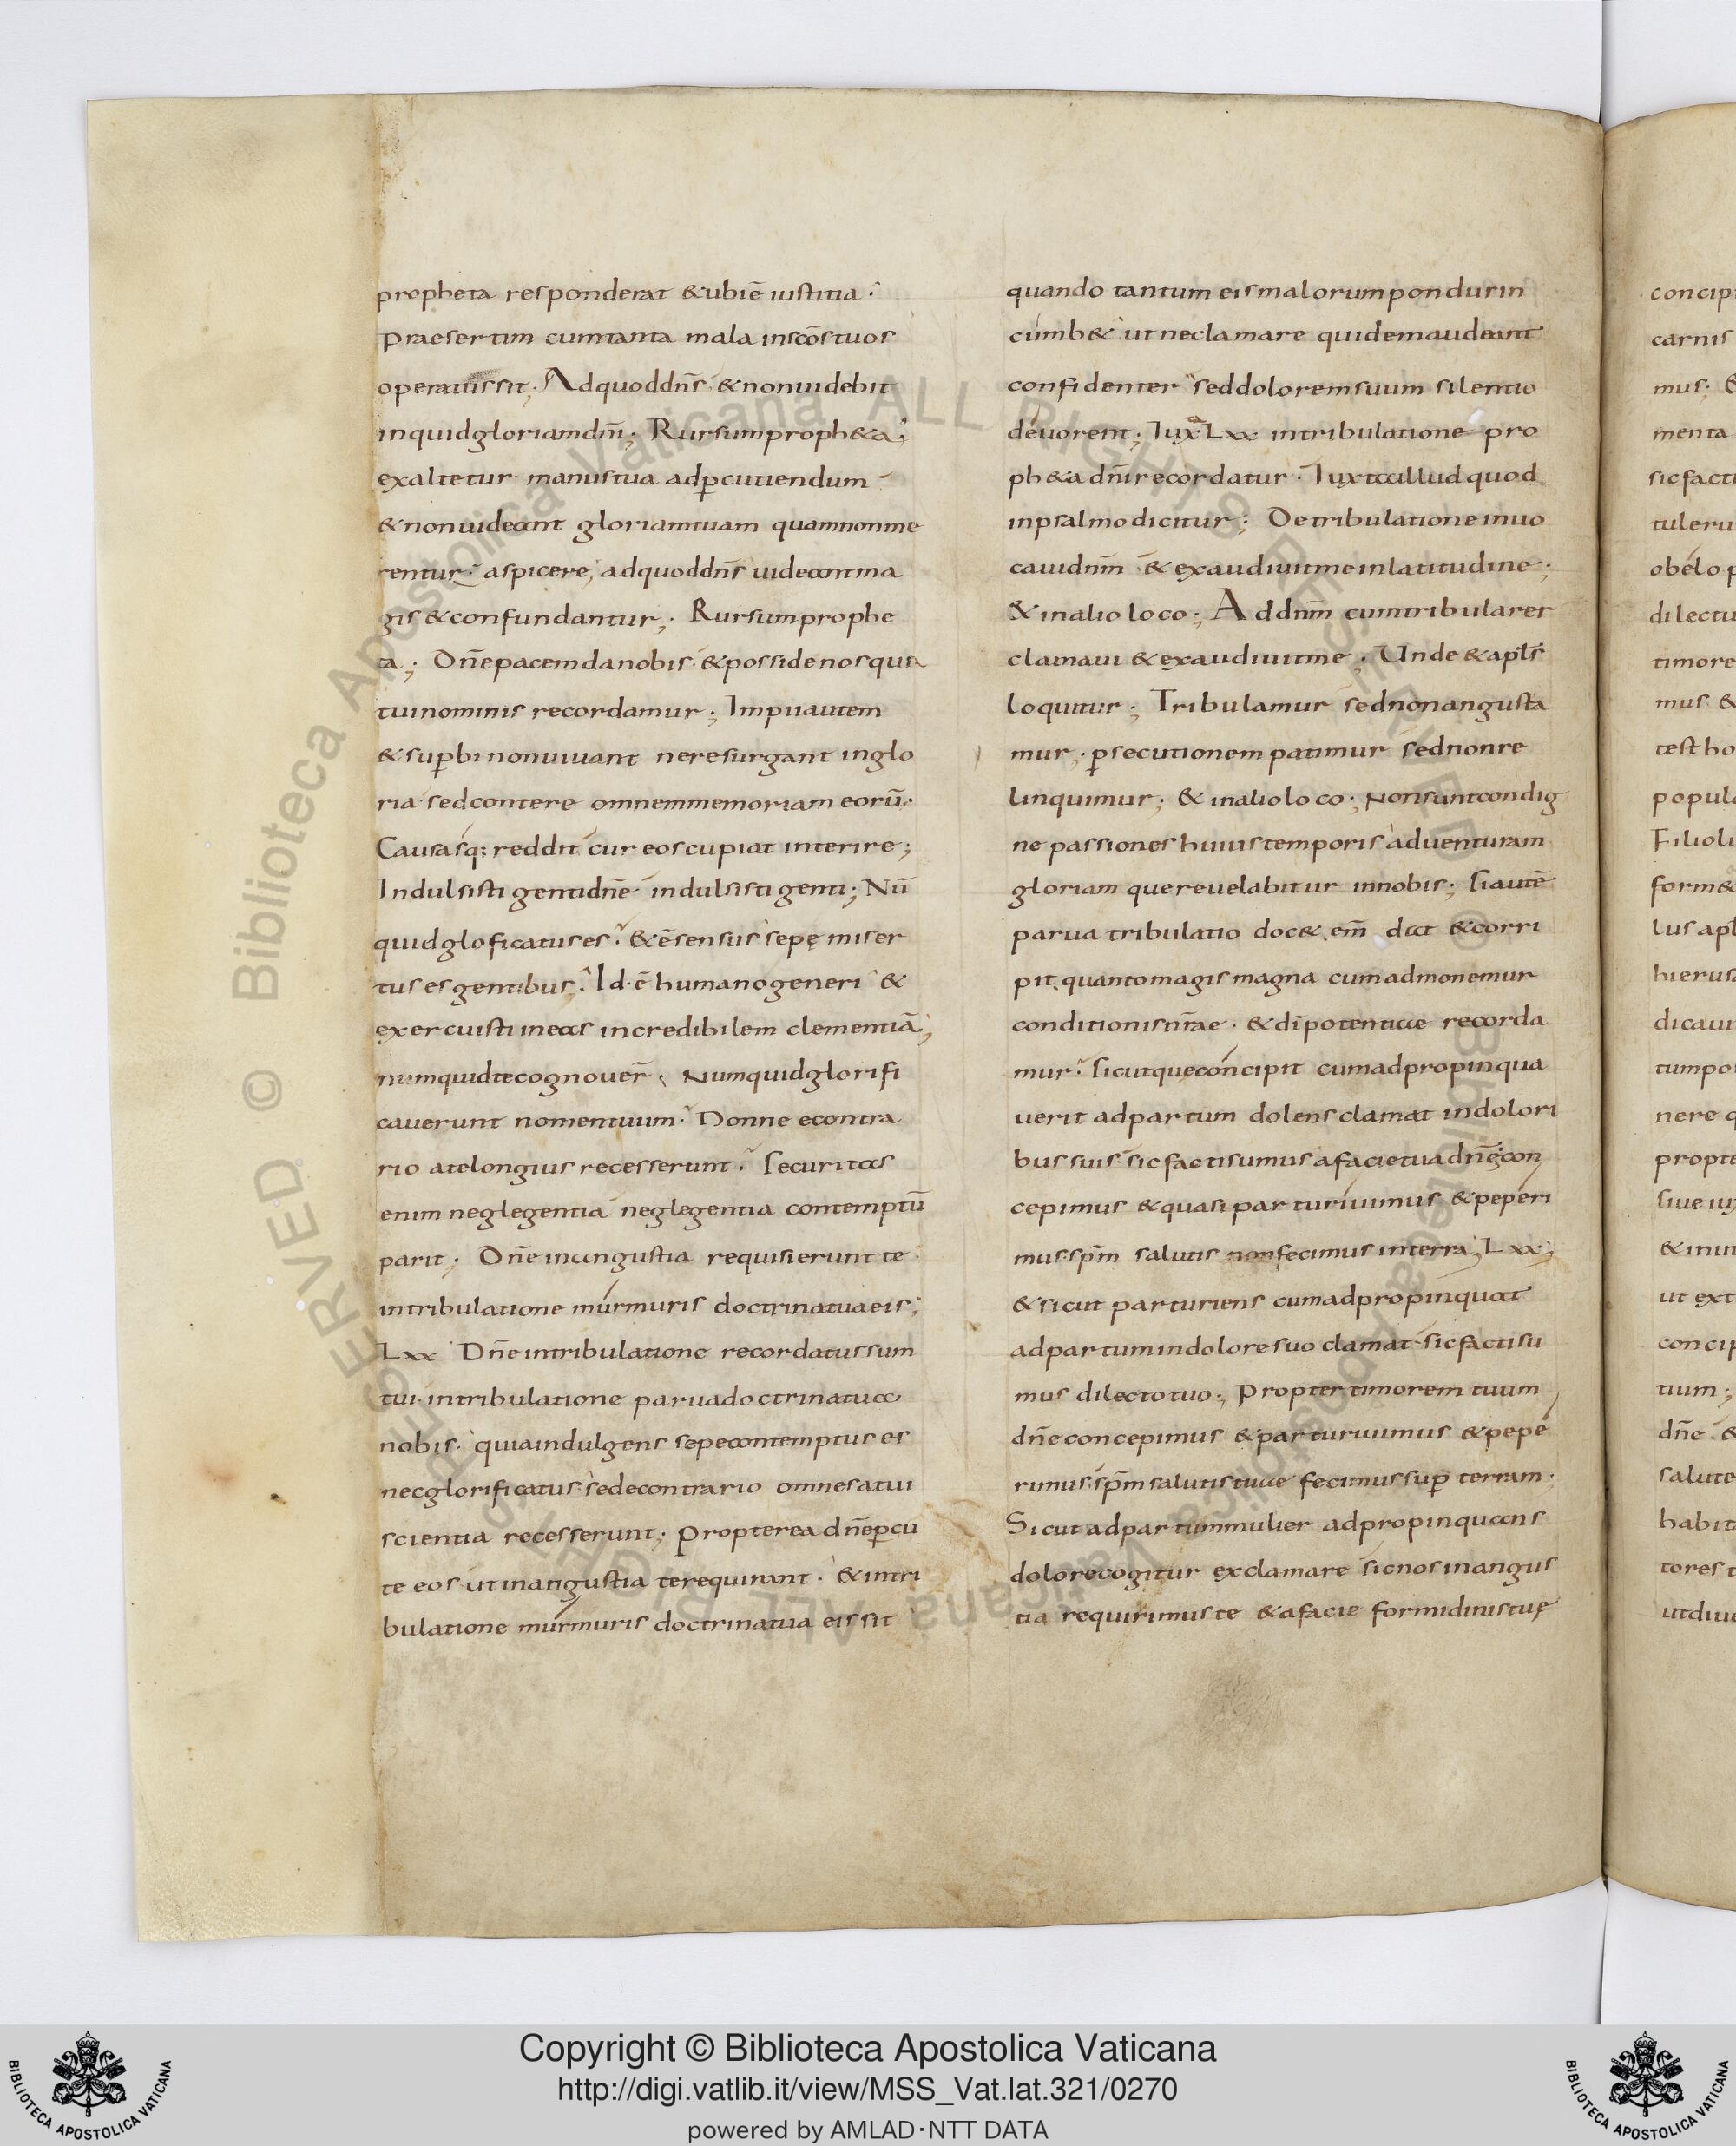 propheta responderat &ubiē iustitia
praesertim cumtanta mala inscōstuos
operatussit; Adquoddn̄s &nonuidebit
inquidgloriamdn̄i; Rursumproph&a;
exaltetur manustua adp̄cutiendum
&nonuideant gloriamtuam quamnonme
rentur aspicere; adquoddn̄s uideantma
gis &confundantur; Rursumprophe
ta; Dn̄epacemdanobis &possidenosquia
tuinominis recordamur; Impiiautem
&sup̄bi nonuiuant neresurgant inglo
ria sedcontere omnemmemoriam eorū.
Causasq; reddit cur eoscupiat interire;
Indulsisti gentidn̄e indulsisti genti; Nū
quidgloficatuses. &ēsensus sepę miser
tus es gentibus. Id.ē humanogeneri &
exercuisti ineas incredibilem clementiā;
numquidtecognouer̄. Numquidglorifi
cauerunt nomentuum. Nonne econtra
rio atelongius recesserunt. Securitas
enim neglegentia neglegentia contemptū
parit; Dn̄e inangustia requisierunt te
intribulatione murmuris doctrinatuaeis;
Lxx Dn̄eintribulatione recordatussum
tui. intribulatione paruadoctrinatua
nobis. quiaindulgens sepecontemptus es
necglorificatus sedecontrario omnesatui
scientia recesserunt; propterea dn̄ep̄cu
te eos utinangustia terequirant. &intri
bulatione murmuris doctrinatua eissit
quando tantum eismalorumpondusin
cumb& utneclamare quidemaudeant
confidenter seddoloremsuum silentio
deuorent; Iuxta Lxx intribulatione pro
ph&a dn̄irecordatur. Iuxtaillud quod
inpsalmodicitur; Detribulatione inuo
cauidn̄m &exaudiuitmeinlatitudine;
&inalio loco; Addn̄m cumtribularer
clamaui &exaudiuitme; Unde &apl̄s
loquitur; Tribulamur sednonangusta
mur; p̄secutionem patimur sednonre
linquimur; &inalioloco; Nonsuntcondig
ne passiones huiustemporis aduenturam
gloriam quereuelabitur innobis; siautē
parua tribulatio doc& em̄dat &corri
pit. quantomagis magna cumadmonemur
conditionisnr̄ae. &dīpotentiae recorda
mur. sicutqueconcipit cumadpropinqua
uerit adpartum dolensclamat indolori
bussuis sicfactisumus afacietuadn̄e; con
cepimus &quasi parturiuimus &peperi
mus.sp̄m salutis nonfecimus interra; Lxx;
&sicut parturiens cumadpropinquat
adpartumindoloresuo clamat. sicfactisu
mus dilectotuo; propter timorem tuum
dn̄e concepimus &parturiuimus &pepe
rimus.sp̄msalutistuae fecimussup̄ terram.
Sicutadpartummulier adpropinquans
dolorecogitur exclamare sicnosinangus
tia requirimuste &afacie formidinistuę
concipi
carnis
mus; &
menta
sicfacti
tuleru
obelo p
dilectu
timore
mus &
testho
popula
Filioli
form&
lus apl̄
hierusa
dicaui
tumpo
nere q
propte
siue iux
&inut
ut ext
concip
tium;
dn̄e &
salute
habit
tores t
utdiu
Copyright © Biblioteca Apostolica Vaticana
http://digi.vatlib.it/view/MSS_Vat.lat.321/0270
powered by AMLAD·NTT DATA
BIBLIOTECA APOSTOLICA VATICANA
BIBLIOTECA APOSTOLICA VATICANA